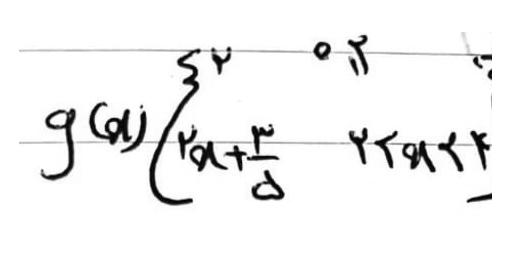 g(x) { ξ² ۰٫۲
۲x + ۳/۵ ۲<x<۴